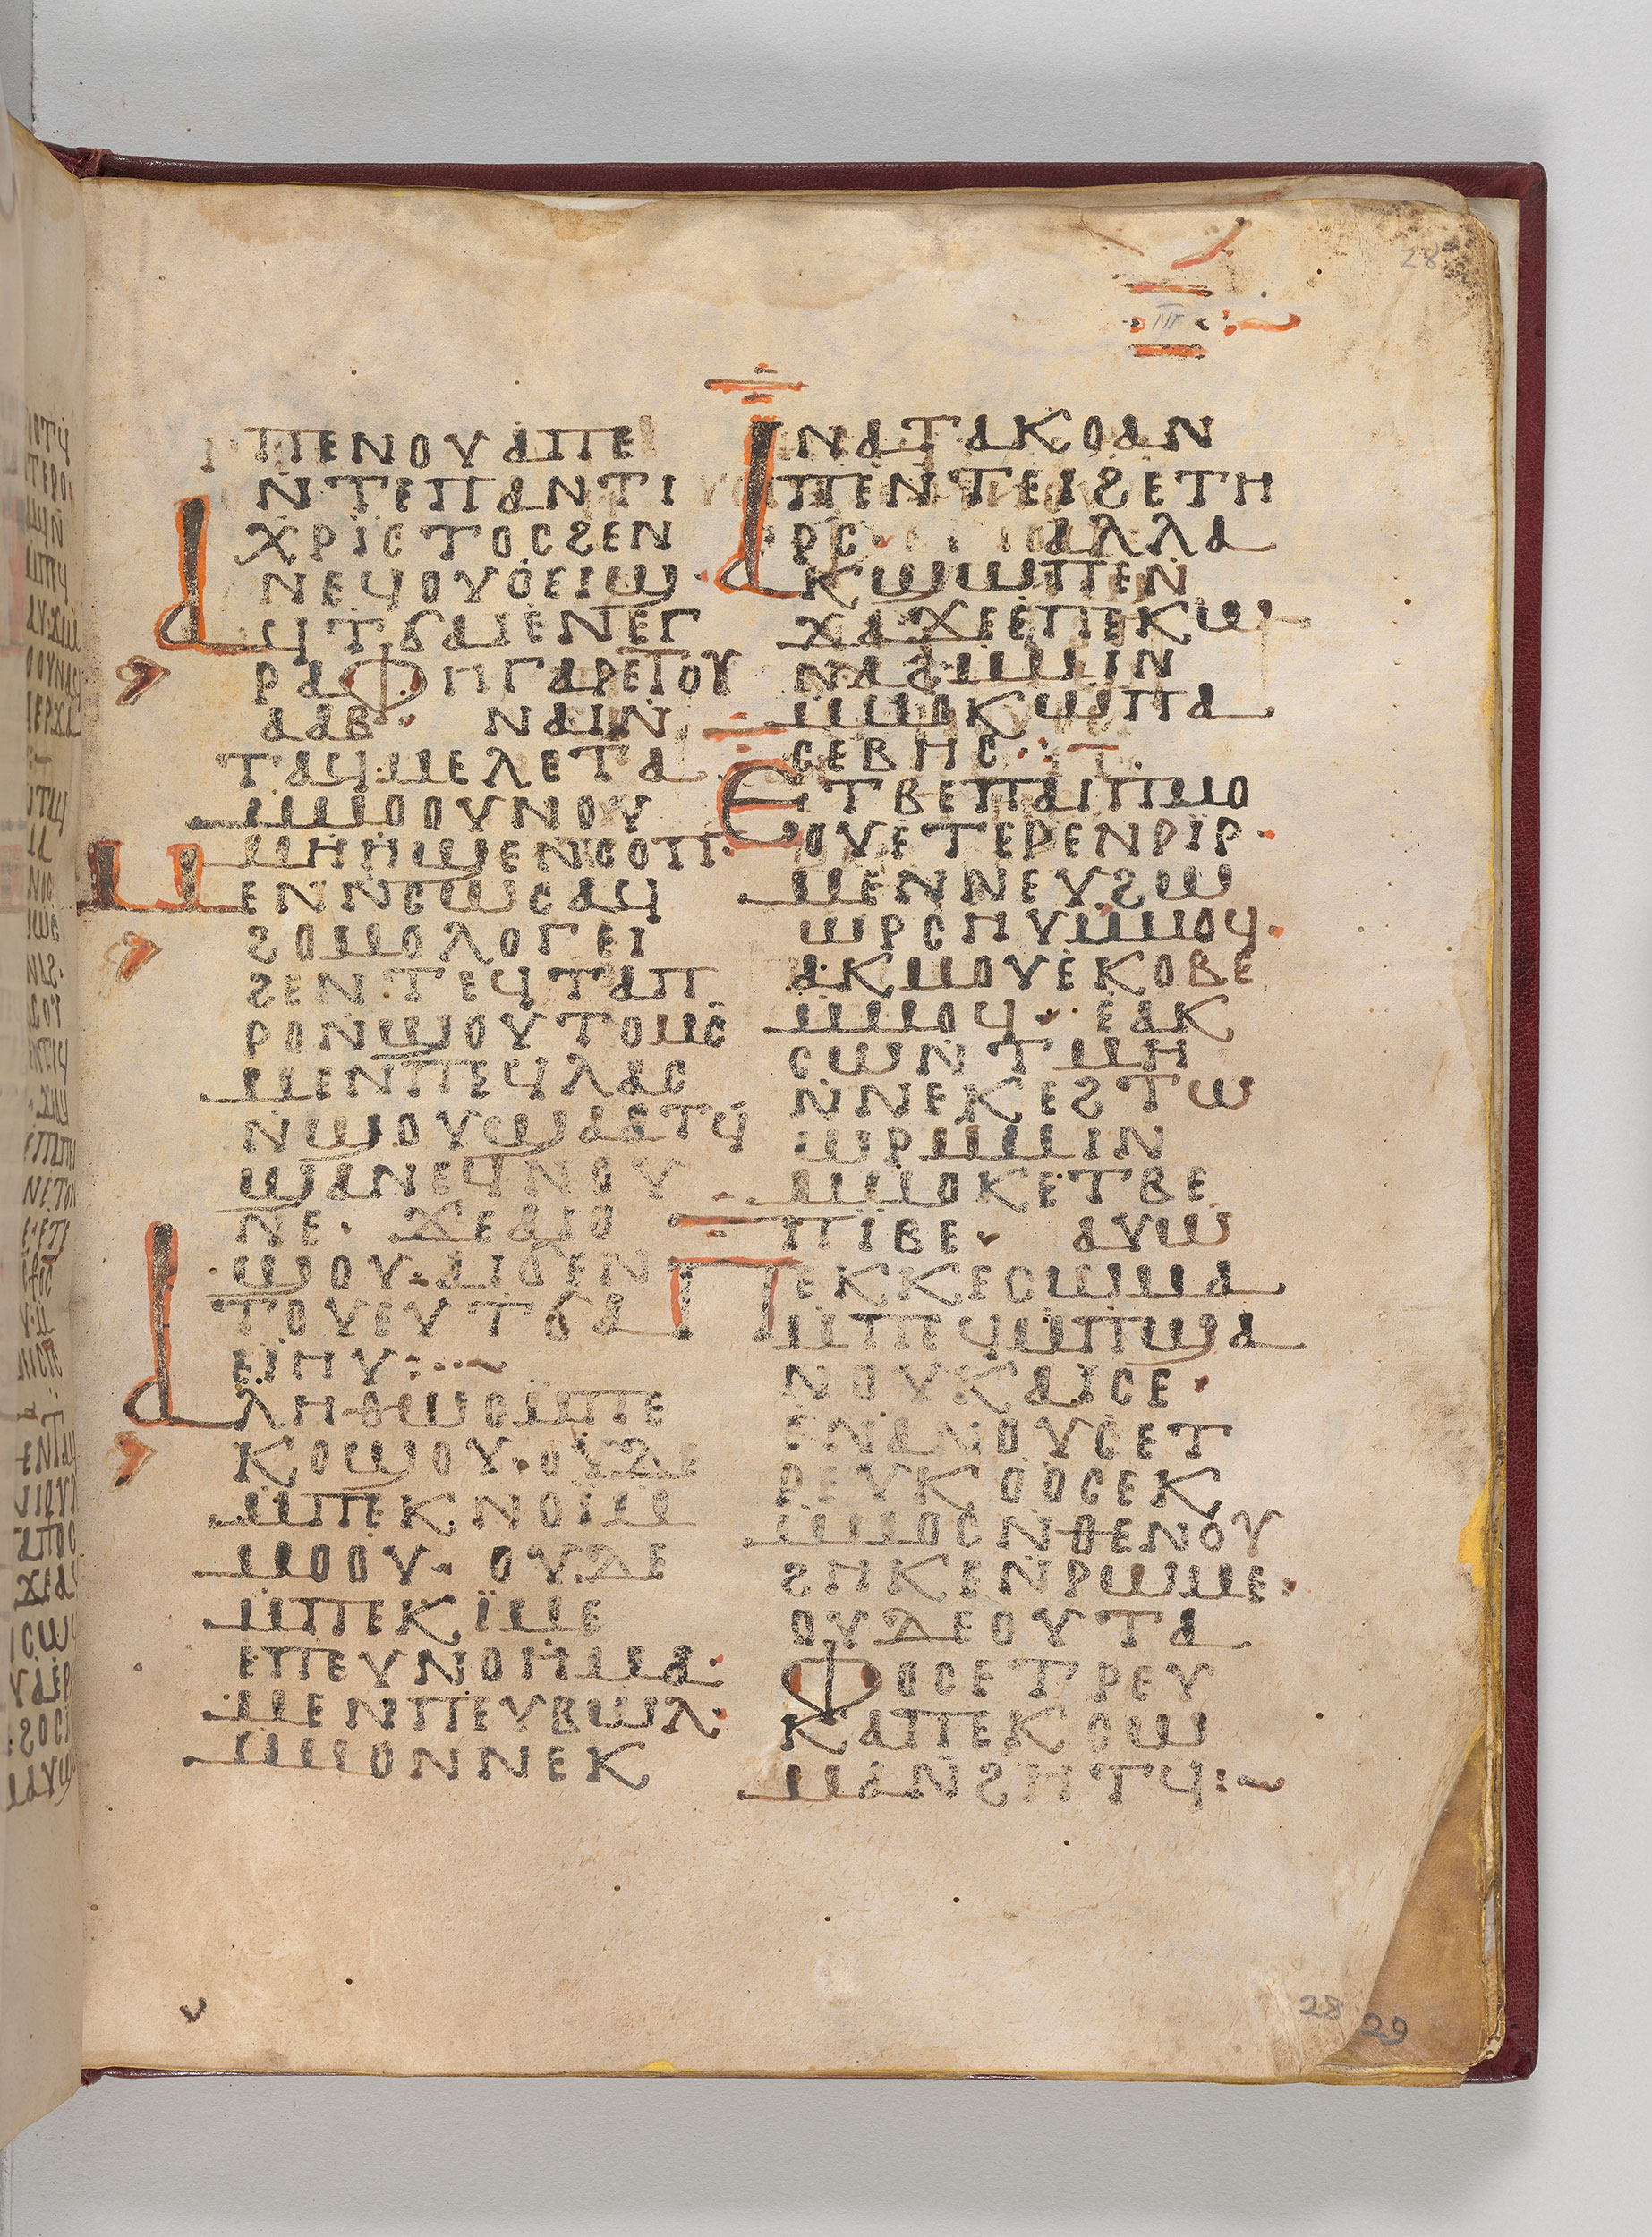 28
ⲠⲈⲚⲞⲨⲀⲠⲈ
ⲚⲦⲈⲠⲀⲚⲦⲒ
ⲬⲢⲒⲤⲦⲞⲤϨⲈⲚ
ⲚⲈϤⲞⲨⲞⲈⲒϢ·
ⲀϤⲦϬⲀⲒⲈⲚⲈⲄ
ⲢⲀⲪⲎⲄⲀⲢⲈⲦⲞⲨ
ⲀⲀⲂ· ⲚⲀⲒⲚ
ⲦⲀϤⲘⲈⲖⲈⲦⲀ
ⲘⲘⲞⲞⲨⲚⲞⲨ
ⲘⲎⲎϢⲈⲚⲤⲞⲠ·
ⲘⲈⲚⲚⲤⲰⲤⲀϤ
ϨⲞⲘⲞⲖⲞⲄⲈⲒ
ϨⲈⲚⲦⲈϤⲦⲀⲠ
ⲢⲞⲚϢⲞⲨⲦⲞⲘⲤ
ⲘⲈⲚⲠⲈϤⲖⲀⲤ
ⲚϢⲞⲨϢⲀⲀⲦϤ
ϢⲀⲚⲈϤⲚⲞⲨ
ⲚⲈ· ϪⲈⲀⲒⲞ
ϢⲞⲨ·ⲀⲒϬⲈⲚ
ⲦⲞⲨⲈⲨⲦϬⲀ
ⲈⲒⲎⲨ:··~
ⲀⲖⲎⲐⲰⲤⲘⲠⲈ
ⲔⲞϢⲞⲨ·ⲞⲨⲆⲈ
ⲘⲠⲈⲔⲚⲞⲒⲘ
ⲘⲞⲞⲨ· ⲞⲨⲆⲈ
ⲘⲠⲈⲔⲒⲘⲈ
ⲈⲠⲈⲨⲚⲞⲎⲘⲀ·
ⲘⲈⲚⲠⲈⲨⲂⲰⲖ·
ⲘⲘⲞⲚⲚⲈⲔ
ⲚⲀⲦⲀⲔⲞⲀⲚ
ⲠⲈⲚⲦⲈⲒϨⲈⲦⲎ
ⲢⲤ· ⲀⲖⲖⲀ
ⲀⲔϢⲰⲠⲈⲚ
ϪⲀϪⲈⲈⲠⲈⲔⲰ
ⲚⲀϨⲘⲘⲒⲚ
ⲘⲘⲞⲔⲰⲠⲀ
ⲤⲈⲂⲎⲤ·:
ⲈⲦⲂⲈⲠⲀⲒⲠⲘⲞ
ⲞⲨⲈⲦⲈⲢⲈⲚⲢⲒⲢ·
ⲘⲈⲚⲚⲈⲨϨⲰ
ⲰⲢⲤⲎⲨⲘⲘⲞϤ·
ⲀⲔⲘⲞⲨⲈⲔⲞⲂⲈ
ⲘⲘⲞϤ· ⲈⲀⲔ
ⲤⲰⲚⲦⲘⲎ
ⲚⲚⲈⲔⲈϨⲦⲰ
ⲰⲢⲘⲘⲒⲚ
ⲘⲘⲞⲔⲈⲦⲂⲈ
ⲠⲒⲂⲈ· ⲀⲨⲰ
ⲠⲈⲔⲔⲈⲤⲰⲘⲀ
ⲘⲠⲈϤⲘⲠϢⲀ
ⲚⲞⲨⲔⲀⲒⲤⲈ·
ⲈⲚⲀⲚⲞⲨⲤⲈⲦ
ⲢⲈⲨⲔⲞⲞⲤⲈⲔ
ⲘⲘⲞⲤⲚⲐⲈⲚⲞⲨ
ϨⲎⲔⲈⲚⲢⲰⲘⲈ·
ⲞⲨⲆⲈⲞⲨⲦⲀ
ⲪⲞⲤⲈⲦⲢⲈⲨ
ⲔⲀⲠⲈⲔⲤⲰ
ⲘⲀⲚϨⲎⲦϤ:~
28 29